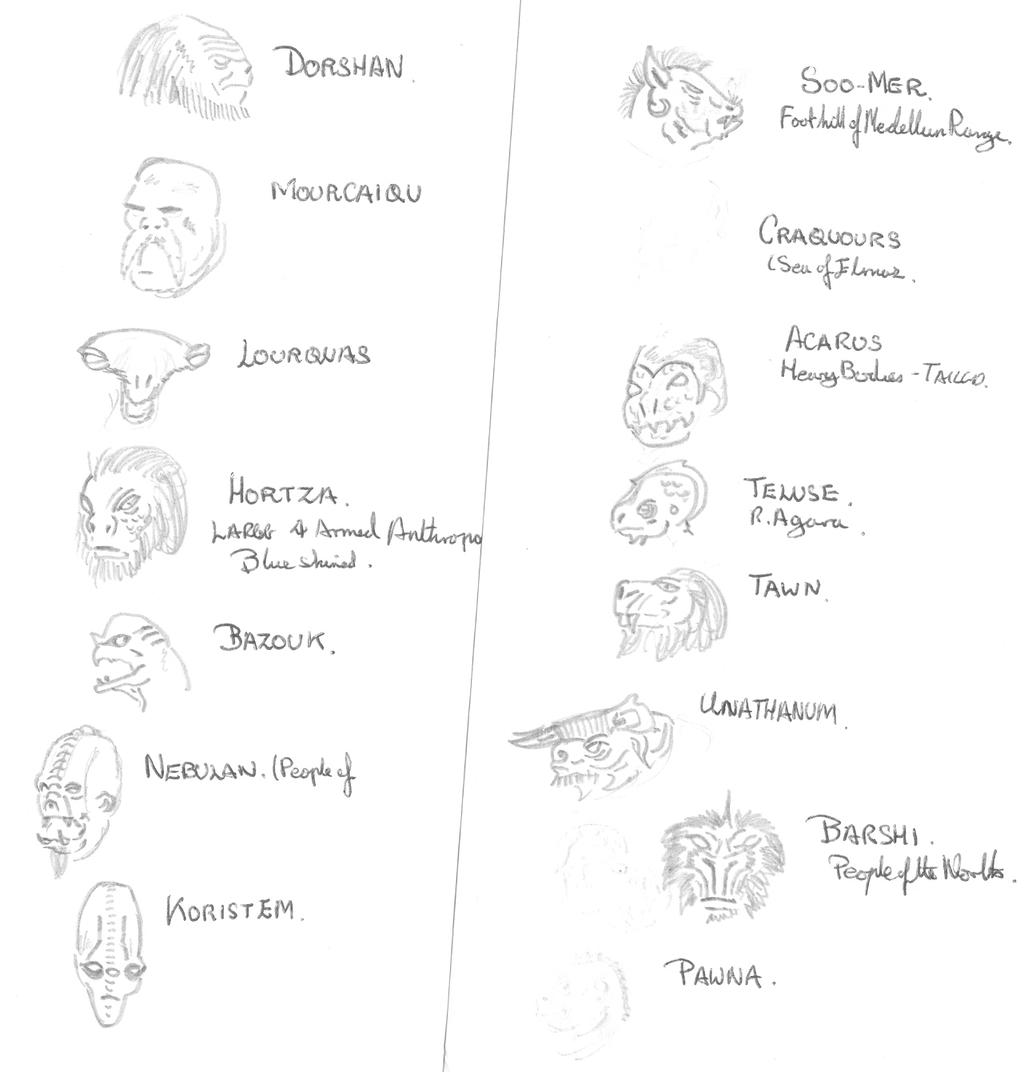 DORSHAN.
MOURCAIQU
LOURQUAS
HORTZA.
LARGE 4 Armed Anthropo
Blue skined.
BAZOUK.
NEBULAN. (People of
KORISTEM.
SOO-MER.
Foothill of Medellun Range.
CRAQUOURS
(Sea of
ACARUS
Heavy Bodies - TAILED.
TELUSE.
R. Agara.
TAWN.
UNATHANUM.
BARSHI.
People of the
PAWNA.